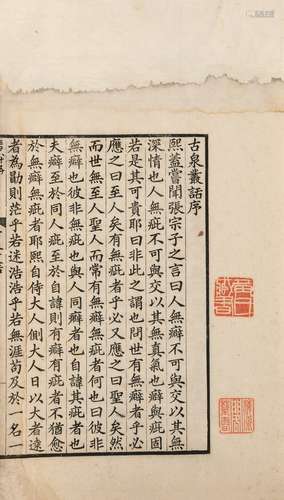 古泉叢話序
熙蓋嘗聞張宗子之言曰人無癖不可與交以其無
深情也人無疵不可與交以其無真氣也癖與疵固
若是其可貴耶曰非此之謂也問世有無癖者乎必
應之曰至人矣有無疵者乎必又應之曰聖人矣然
而世無至人聖人而常有無癖無疵者何也曰彼非
無癖也彼非無疵也與人同癖者也自諱其疵者也
夫癖至於同人疵至於自諱則有癖有疵者不猶愈
於無癖無疵者耶熙自侍大人側大人日以大者遠
者為勖則茫乎若迷浩浩乎若無涯苟及於一名一